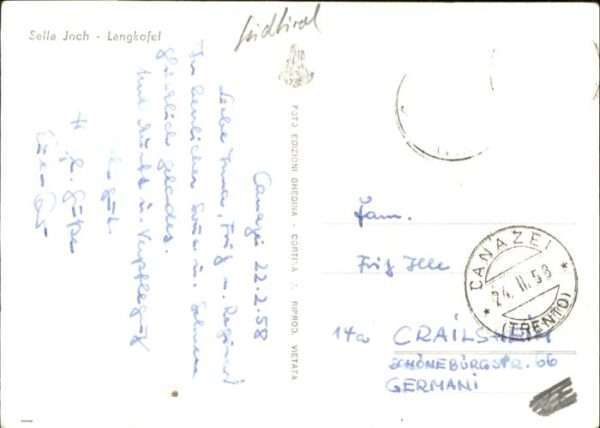 Sella Joch - Lengkofel
Südtirol
FOTO EDIZIONI GHEDINA - CORTINA - RIPROD. VIETATA
Canazei 22.2.58
Liebe Irma, Fritz u.
In herrlicher Sonne u. Schnee
glücklich gelandet.
u. Verpflegung
gut.
H. Grüße
Fam.
Fritz Ille
14a CRAILSHEIM
SCHÖNEBÜRGSTR. 66
GERMANI
CANAZEI
24.II.58
(TRENTO)